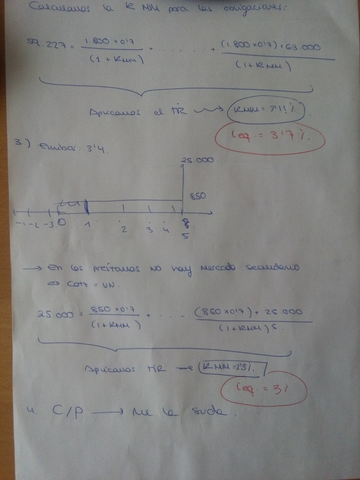 Calculamos la K MM para las obligaciones:
59.227 = (1.800 x 0'7) / (1 + KMM) + ..... + ((1.800 x 0'7) + 63.000) / (1 + KMM)
Aplicamos el TIR → KMM =
Coq. = 3'7%.
3.) 3'4.
25.000
850
-1 -2 -3 0 1 2 3 4 5
→ En los préstamos no hay mercado secundario
⇒ Cot = VN
25.000 = (850 x 0'7) / (1 + KMM) + ..... + ((850 x 0'7) + 25.000) / (1 + KMM)5
Aplicamos TIR → KMM =
Coq = 3%
4. C/P → Me la suda.